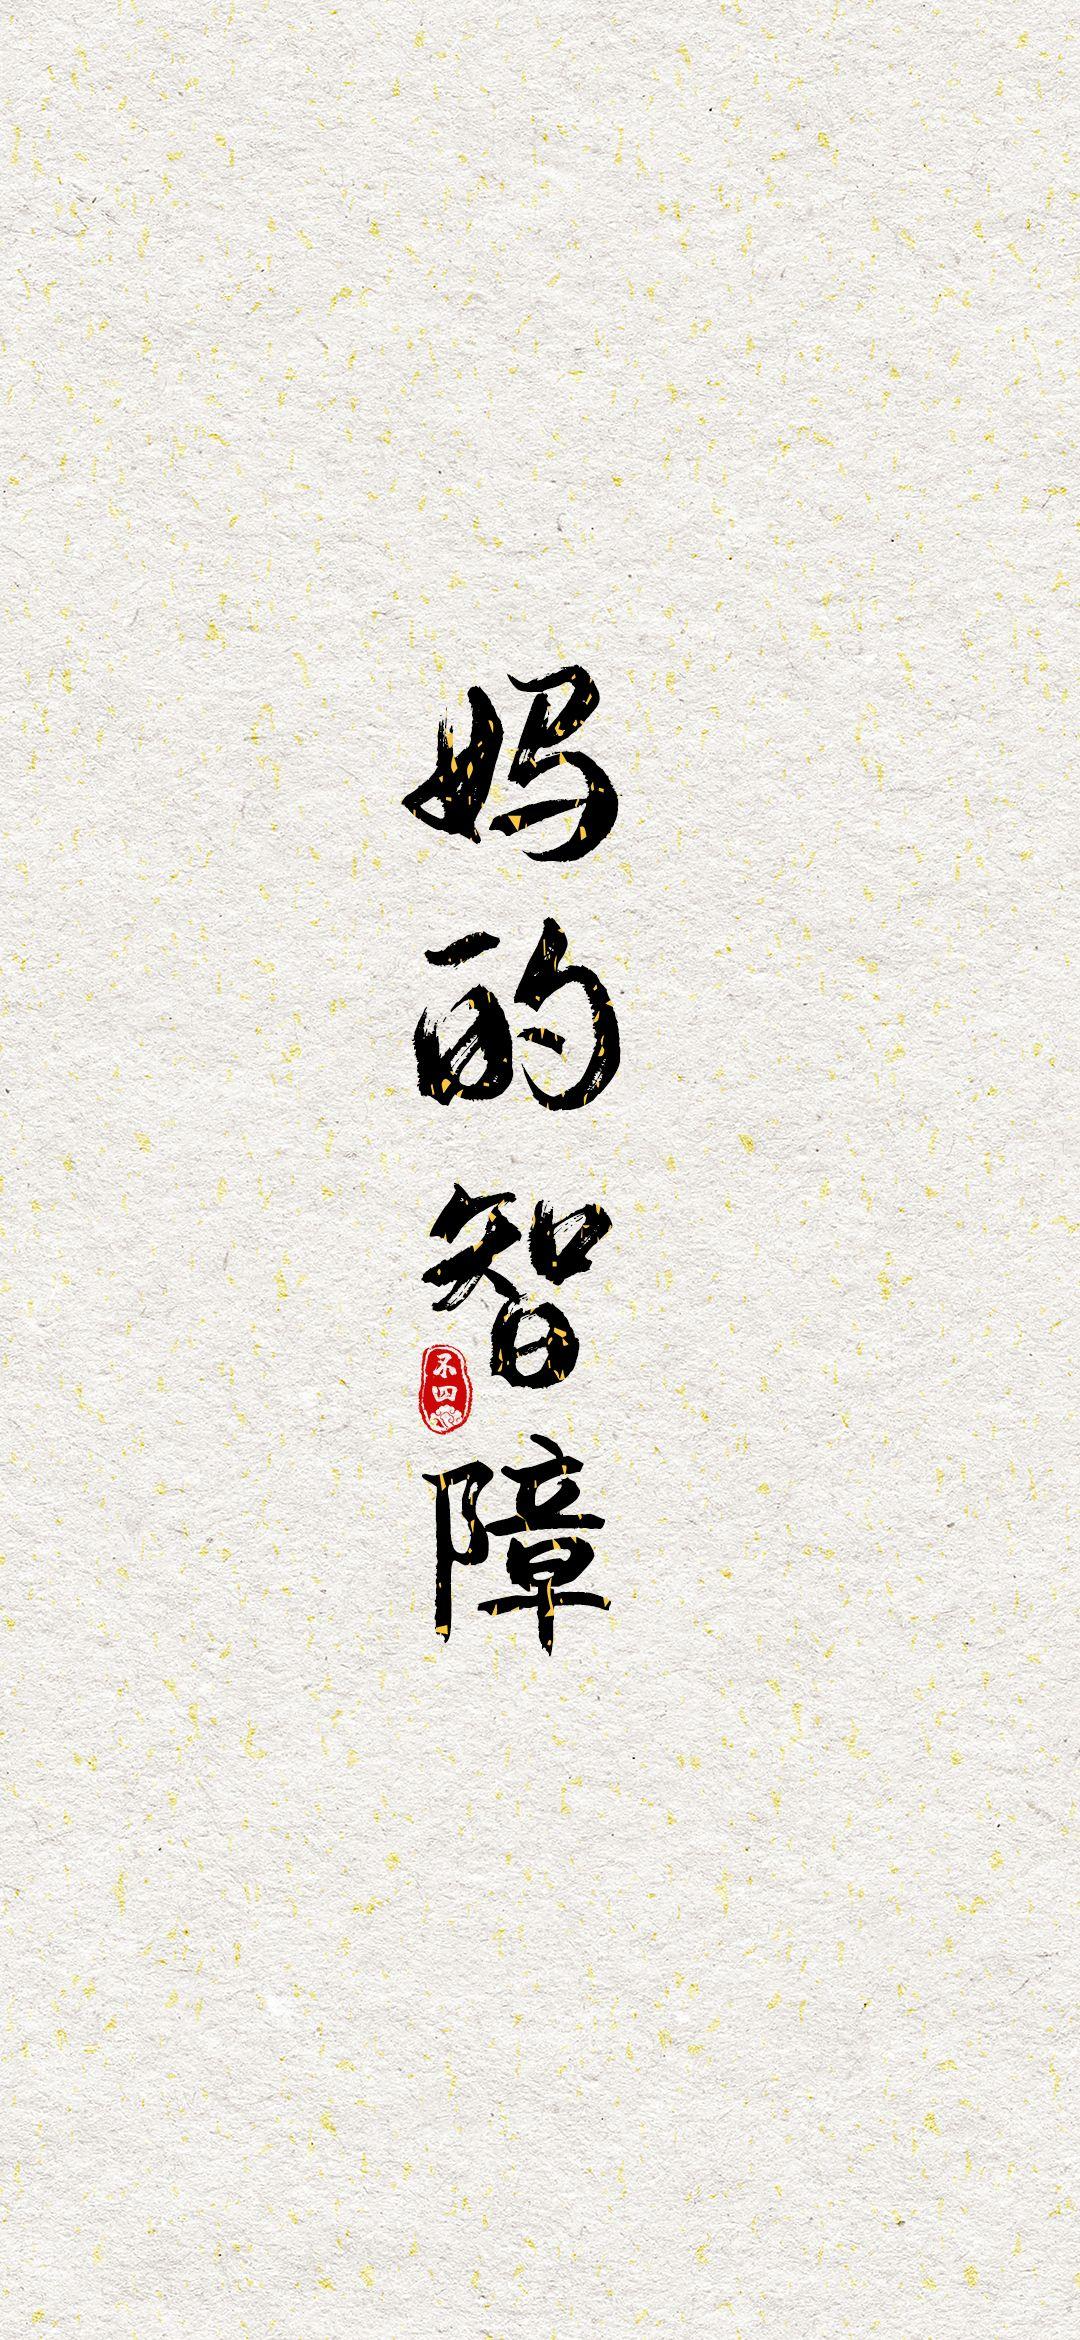 妈的智障
不四